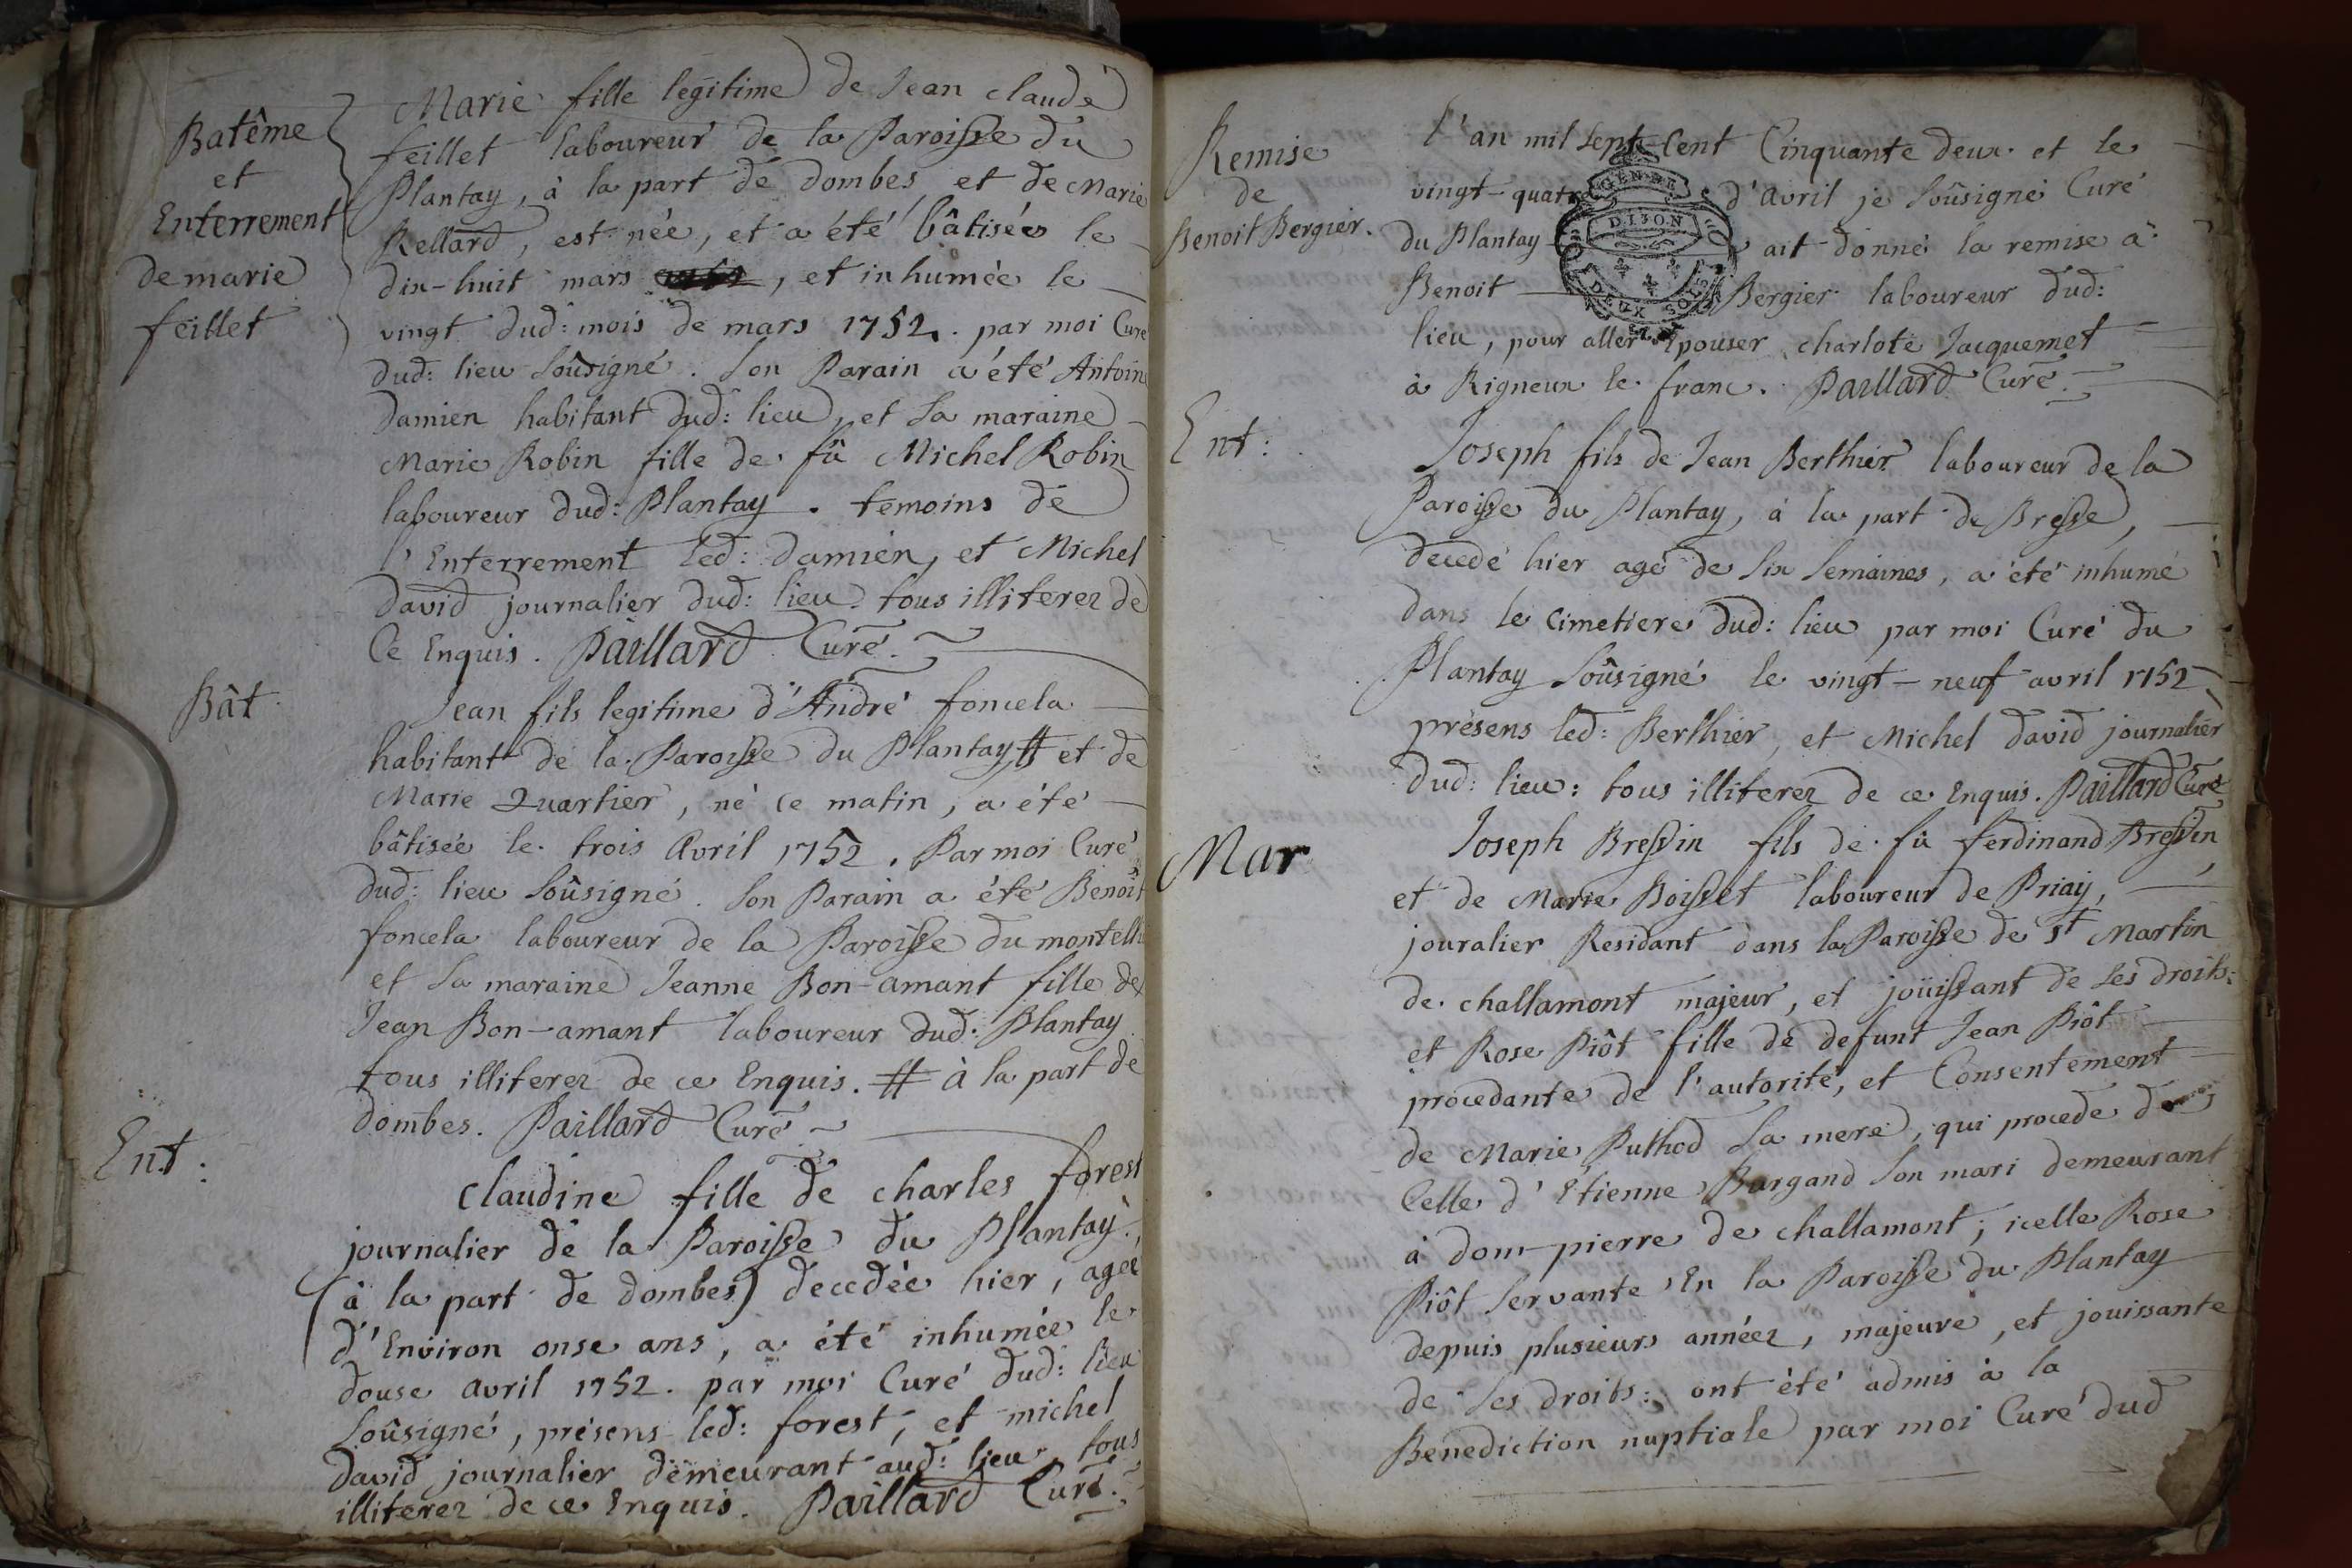 Batême
et
Enterrement
de marie
feillet
Marie fille legitime de Jean claude
feillet laboureur de la Paroisse du
Plantay, à la part de dombes et de Marie
Rellard, est née, et a été bâtisée le
dix-huit mars , et inhumée le
vingt dud: mois de mars 1752. par moi Curé
dud: lieu soûsigné. son Parain a été Antoin
damien habitant dud: lieu, et sa maraine
Marie Robin fille de fû Michel Robin
laboureur dud: Plantay. temoins de
l'Enterrement led: damien, et Michel
david journalier dud: lieu. tous illiterez de
Ce Enquis. Paillard Curé.
Bât.
Jean fils legitime d'André foncela
habitant de la Paroisse du Plantay # et de
Marie Quartier, né ce matin, a été
bâtisée le trois Avril 1752. Par moi Curé
dud: lieu soûsigné. son Parain a été Benoit
foncela laboureur de la Paroisse du montelli
et sa maraine Jeanne Bon-amant fille de
Jean Bon-amant laboureur dud: Plantay
tous illiterez de ce Enquis. # à la part de
dombes. Paillard Curé
Ent:
claudine fille de charles forest
journalier de la Paroisse du Plantay,
(à la part de dombes) decedée hier, agée
d'Environ onse ans, a été inhumée le
douse avril 1752. par moi Curé dud: lieu
soûsigné, présens led: forest, et michel
david journalier demeurant aud: lieu, tous
illiterez de ce Enquis. Paillard Curé.
Remise
de
Benoit Bergier.
GEN DE
DIJON
DEUX SOLS
l'an mil sept Cent Cinquante deux et le
vingt-quatre d'avril je soûsigné Curé
du Plantay ait donné la remise à
Benoit Bergier laboureur dud:
lieu, pour aller Epouser charlote Jacquemet
à Rigneux le franc. Paillard Curé.
Ent:
Joseph fils de Jean Berthier laboureur de la
Paroisse du Plantay, à la part de Bresse,
decedé hier agé de six semaines, a été inhumé
dans le cimetiere dud: lieu par moi Curé du
Plantay soûsigné le vingt-neuf avril 1752
présens led: Berthier, et Michel david journalier
dud: lieu: tous illiterez de ce Enquis. Paillard Curé
Mar
Joseph Bressin fils de fû ferdinand Bressin
et de Marie Boisset laboureur de Priaÿ,
jouralier Residant dans la Paroisse de St Martin
de challamont majeur, et joüissant de ses droits:
et Rose Piôt fille de defunt Jean Piôt
procedante de l'autorité, et Consentement
de Marie Puthod sa mere, qui procede de
Celle d'Etienne Burgand son mari demeurant
à dom-pierre de challamont; icelle Rose
Piôt servante En la Paroisse du Plantay
depuis plusieurs années, majeure, et jouissante
de ses droits: ont été admis à la
Benediction nuptiale par moi Curé dud